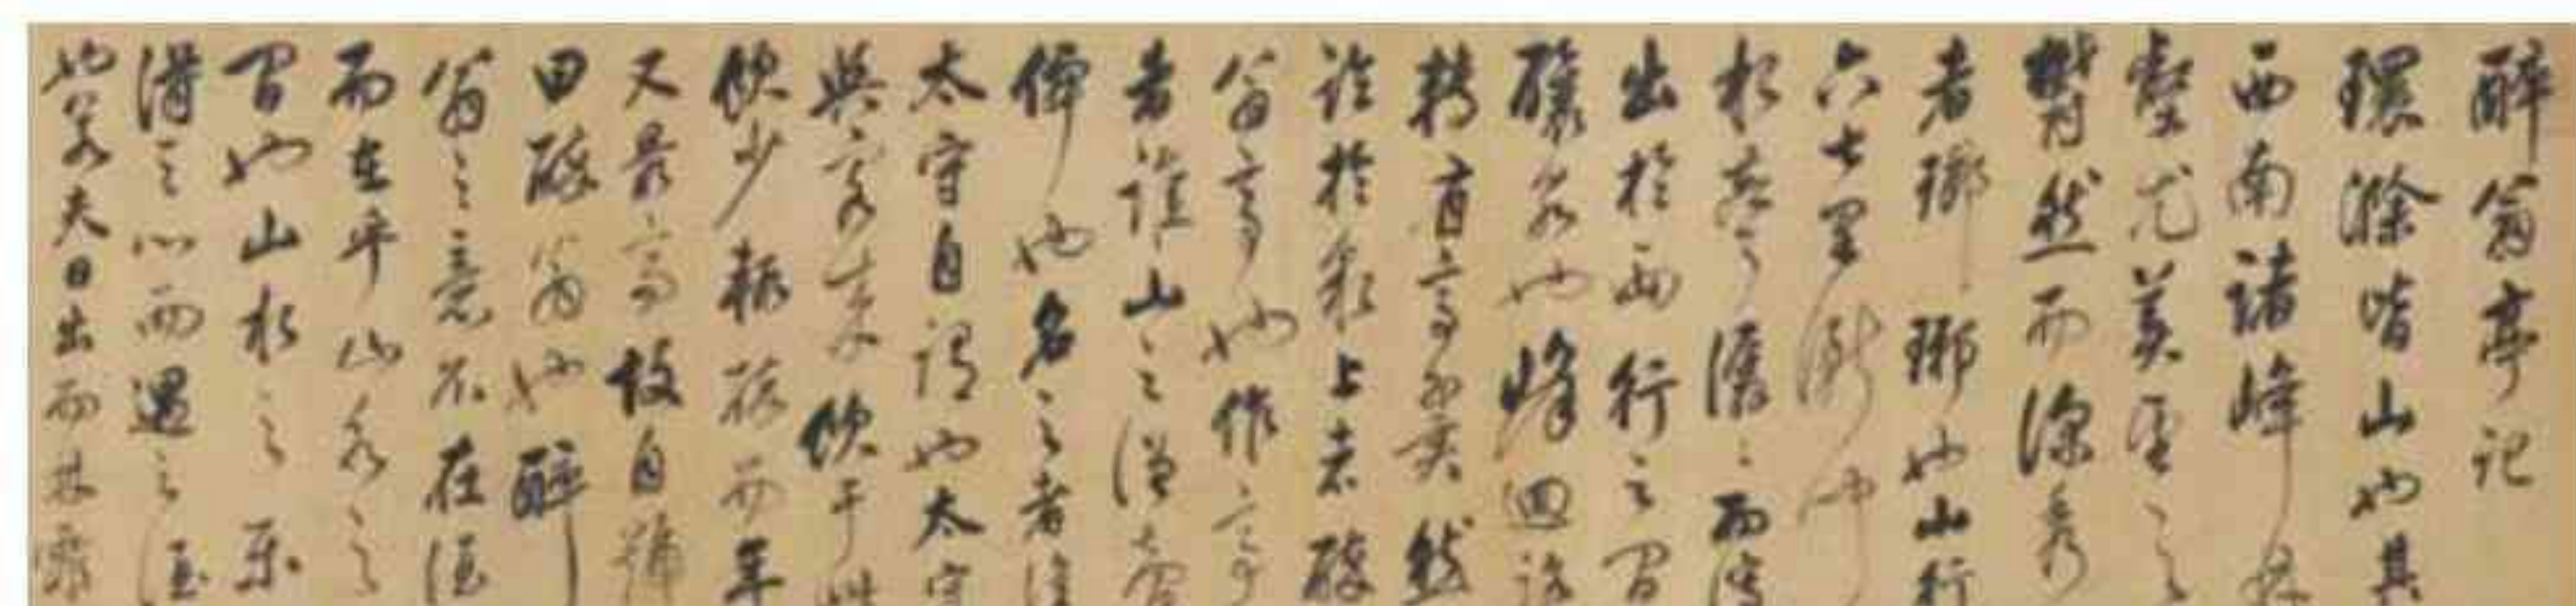 醉翁亭記
環滁皆山也其
西南諸峰林
壑尤美望之
欝然而深秀
者瑯琊也山行
六七里漸聞
水聲潺々而瀉
出於兩行之間
釀泉也峰回路
轉有亭翼然
臨於泉上者醉
翁亭也作亭
者誰山之僧智
僊也名之者誰
太守自謂也太守
與客來飲于此
飲少輒醉而年
又最高故自號
曰醉翁也醉
翁之意不在酒
而在乎山水之
間也山水之樂
得之心而遇之酒
也若夫日出而林霏